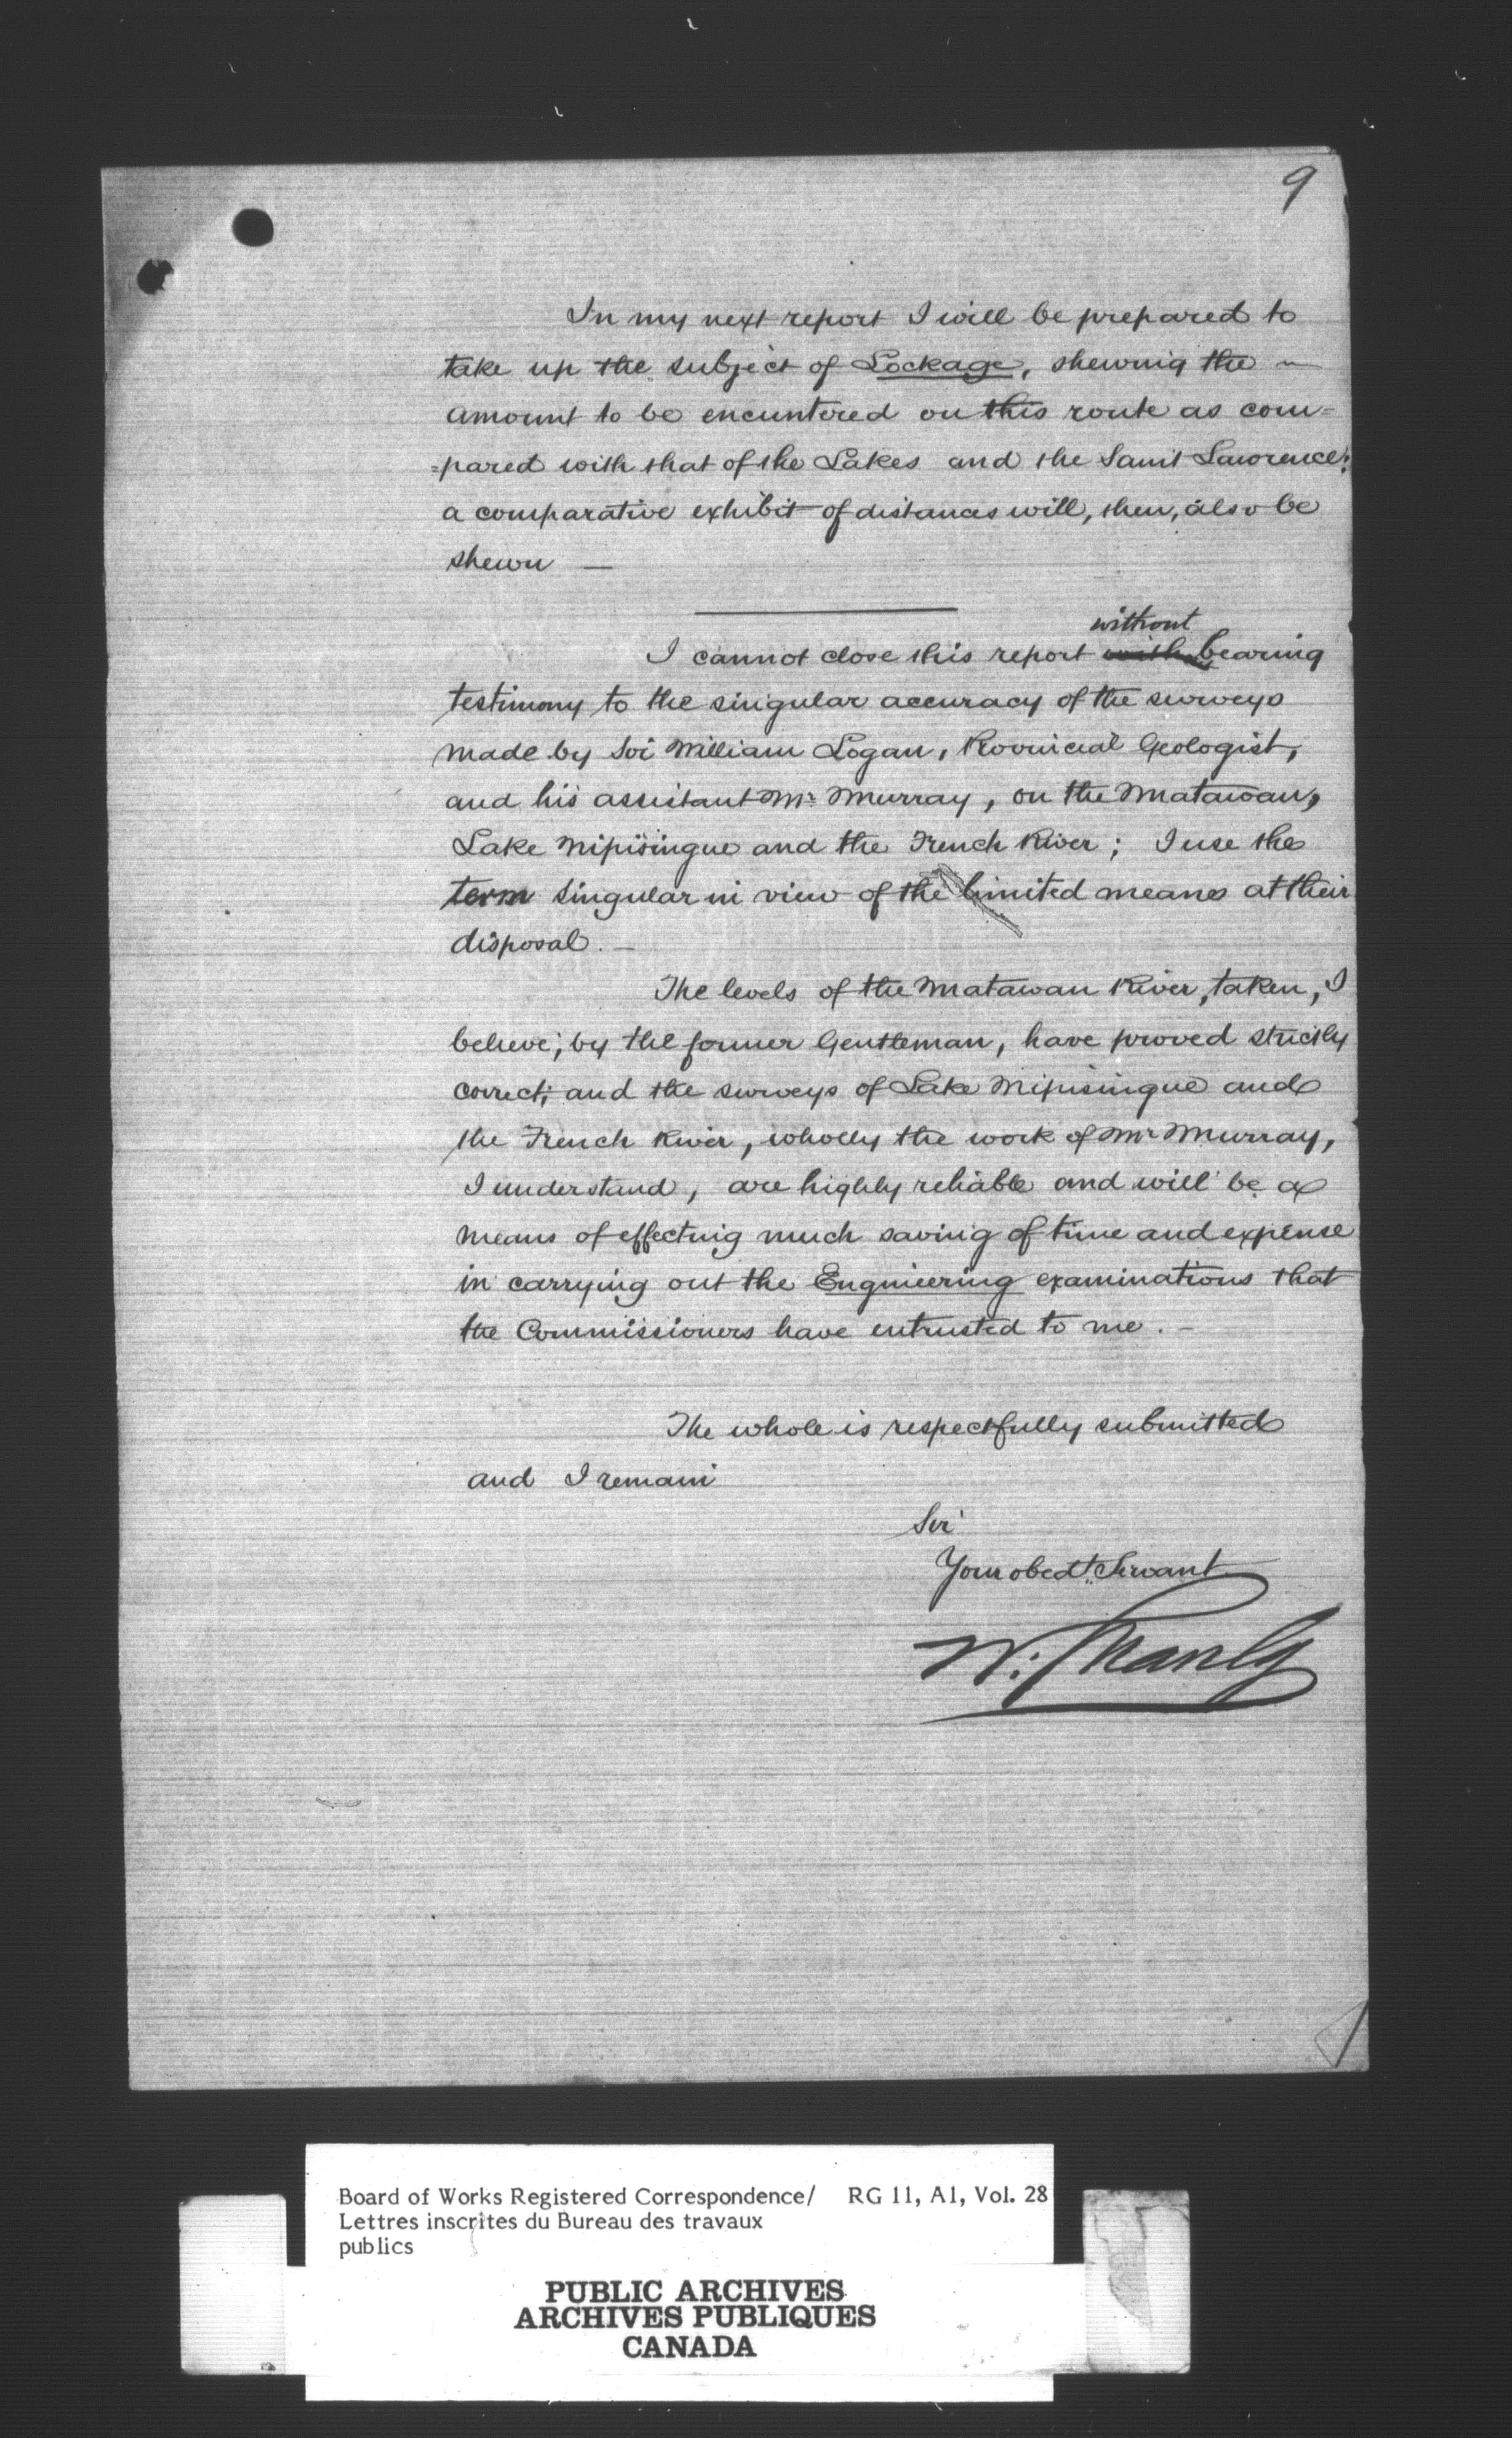 9
In my next report I will be prepared to
take up the subject of Lockage, shewing the ~
amount to be encuntered on this route as com=
=pared with that of the Lakes and the Saint Lawrence:
a comparative exhibit of distances will, then, also be
shewn —
without
I cannot close this report with bearing
testimony to the singular accuracy of the surveys
made by Sir William Logan, Provincial Geologist,
and his assistant Mr. Murray, on the Matawan,
Lake Nipisingue and the French River; I use the
term singular in view of the limited means at their
disposal. —
The levels of the Matawan River, taken, I
believe, by the former Gentleman, have proved strictly
correct; and the surveys of Lake Nipisingue and
the French River, wholly the work of Mr Murray,
I understand, are highly reliable and will be a
means of effecting much saving of time and expense
in carrying out the Engineering examinations that
the Commissioners have entrusted to me. —
The whole is respectfully submitted
and I remain
Sir
Your obedt. Servant
W. Shanly
Board of Works Registered Correspondence/ RG 11, A1, Vol. 28
Lettres inscrites du Bureau des travaux
publics
PUBLIC ARCHIVES
ARCHIVES PUBLIQUES
CANADA